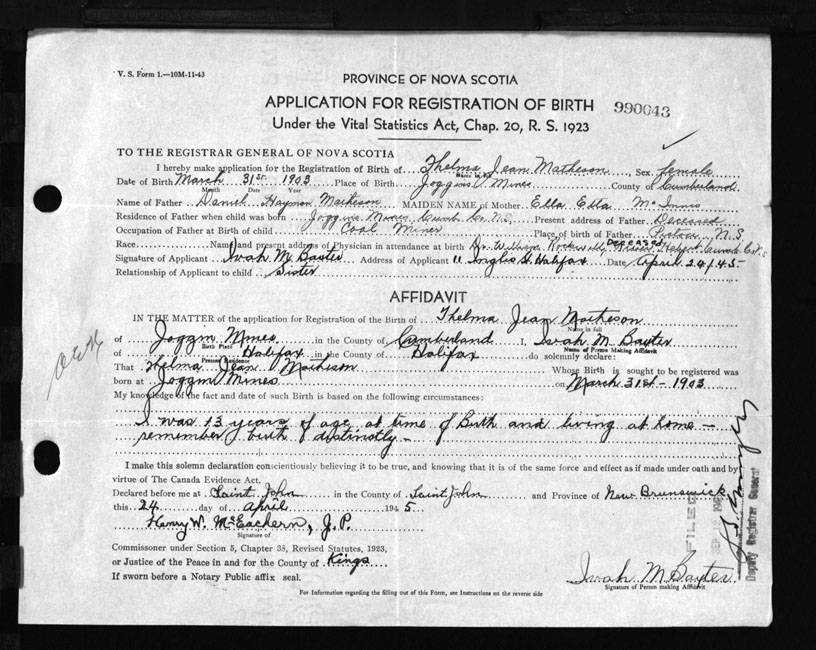 V. S. Form 1.—10M-11-43
PROVINCE OF NOVA SCOTIA
APPLICATION FOR REGISTRATION OF BIRTH 990043
Under the Vital Statistics Act, Chap. 20, R. S. 1923
TO THE REGISTRAR GENERAL OF NOVA SCOTIA
I hereby make application for the Registration of Birth of Thelma Jean Matheson, Sex female
Date of Birth March 31st 1903 Place of Birth Joggins Mines County of Cumberland
Month Date Year
Name of Father Daniel Hayman Matheson MAIDEN NAME of Mother Ella Etta McInnis
Residence of Father when child was born Joggins Mines, Cumb. Co. N.S. Present address of Father Deceased
Occupation of Father at Birth of child Coal Miner Place of birth of Father Pictou N.S.
Race Name and present address of Physician in attendance at birth Dr. William Rockwell DECEASED
Signature of Applicant Ivah M Baxter Address of Applicant 11 Inglis St Halifax Date April 24/45
Relationship of Applicant to child Sister
AFFIDAVIT
IN THE MATTER of the application for Registration of the Birth of Thelma Jean Matheson
Name in full
of Joggin Mines in the County of Cumberland I, Ivah M. Baxter
Birth Place Name of Person Making Affidavit
of Halifax in the County of Halifax do solemnly declare:
Present Residence
That Thelma Jean Matheson Whose Birth is sought to be registered was
born at Joggin Mines on March 31st - 1903
My knowledge of the fact and date of such Birth is based on the following circumstances:
I was 13 years of age at time of Birth and living at home —
remember birth of distinctly —
I make this solemn declaration conscientiously believing it to be true, and knowing that it is of the same force and effect as if made under oath and by
virtue of The Canada Evidence Act.
Declared before me at Saint John in the County of Saint John and Province of New Brunswick
this 24 day of April 1945
Henry W. McEachern, J.P.
Signature of
Commissioner under Section 5, Chapter 38, Revised Statutes, 1923,
or Justice of the Peace in and for the County of Kings
If sworn before a Notary Public affix seal.
Ivah M. Baxter
Signature of Person making Affidavit
For Information regarding the filling out of this Form, see Instructions on the reverse side
FILED
Deputy Registrar General